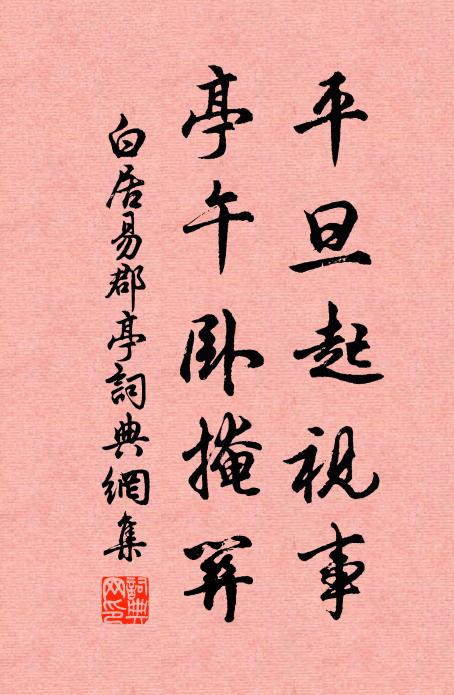 平旦起視事
亭午卧掩關
白居易郡亭詞典網集
詞典
网印